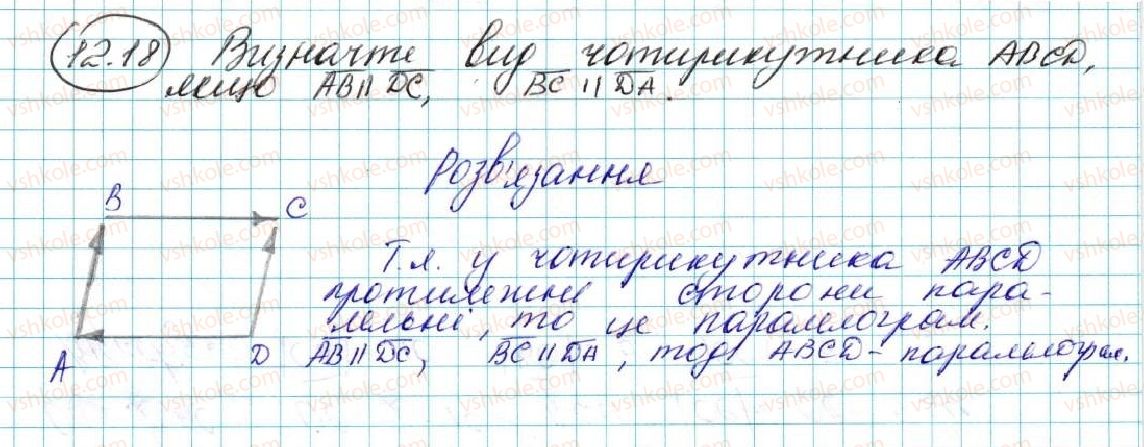 12.18 Визначте вид чотирикутника ABCD,
якщо AB || DC, BC || DA.
Розв'язання
B C
Т.я. у чотирикутника ABCD
протилежні сторони пара-
лельні, то це паралелограм.
A D AB || DC, BC || DA, тоді ABCD - паралелограм.